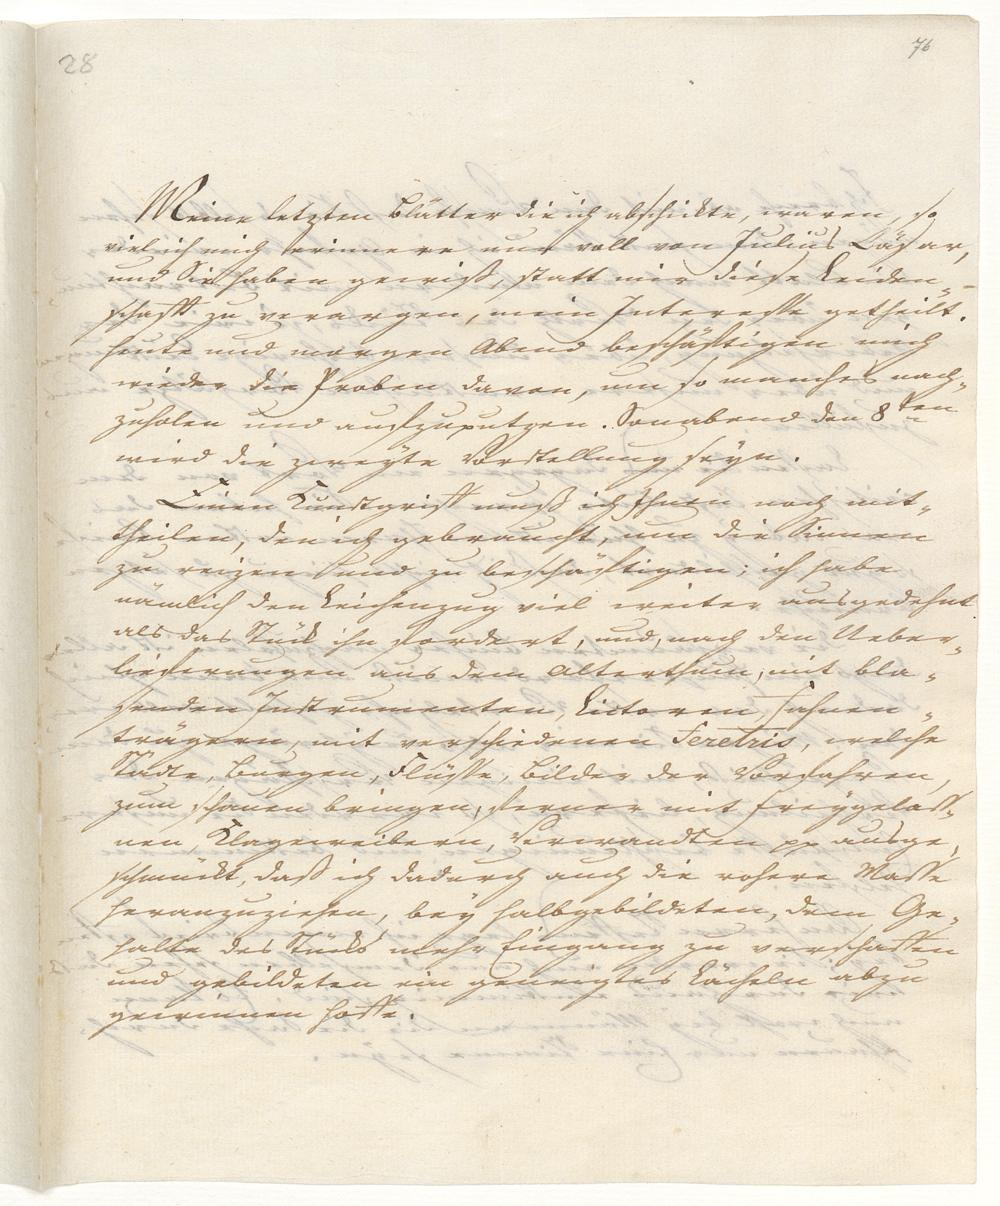 28
76
Meine letzten Blätter die ich abschickte, waren, so
viel ich mich erinnere nur voll von Julius Cäsar,
und Sie haben gewiß, statt mir diese Leiden„
schaft zu verargen, mein Interesse getheilt.
Heute und morgen Abend beschäftigen mich
wieder die Proben davon, um so manches nach„
zuholen und aufzuputzen. Sonabend den 8ten
wird die zweyte Vorstellung seyn.
Einen Kunstgriff muß ich Ihnen noch mit„
theilen, den ich gebraucht, um die Sinnen
zu reizen und zu beschäftigen; ich habe
nämlich den Leichenzug viel weiter ausgedehnt
als das Stück ihn fordert, und, nach den Ueber„
lieferungen aus dem Alterthum, mit bla„
senden Instrumenten, Lictoren, Fahnen„
trägern, mit verschiedenen Feretris, welche
Städte, Burgen, Flüsse, Bilder der Vorfahren,
zum schauen bringen, ferner mit Freygelaß„
nen, Klageweibern, Verwandten pp ausge„
schmückt, daß ich dadurch auch die rohere Masse
heranzuziehen, bey halbgebildeten, dem Ge„
halte des Stücks mehr Eingang zu verschaffen
und gebildeten ein geneigtes Lächeln abzu
gewinnen hoffe.